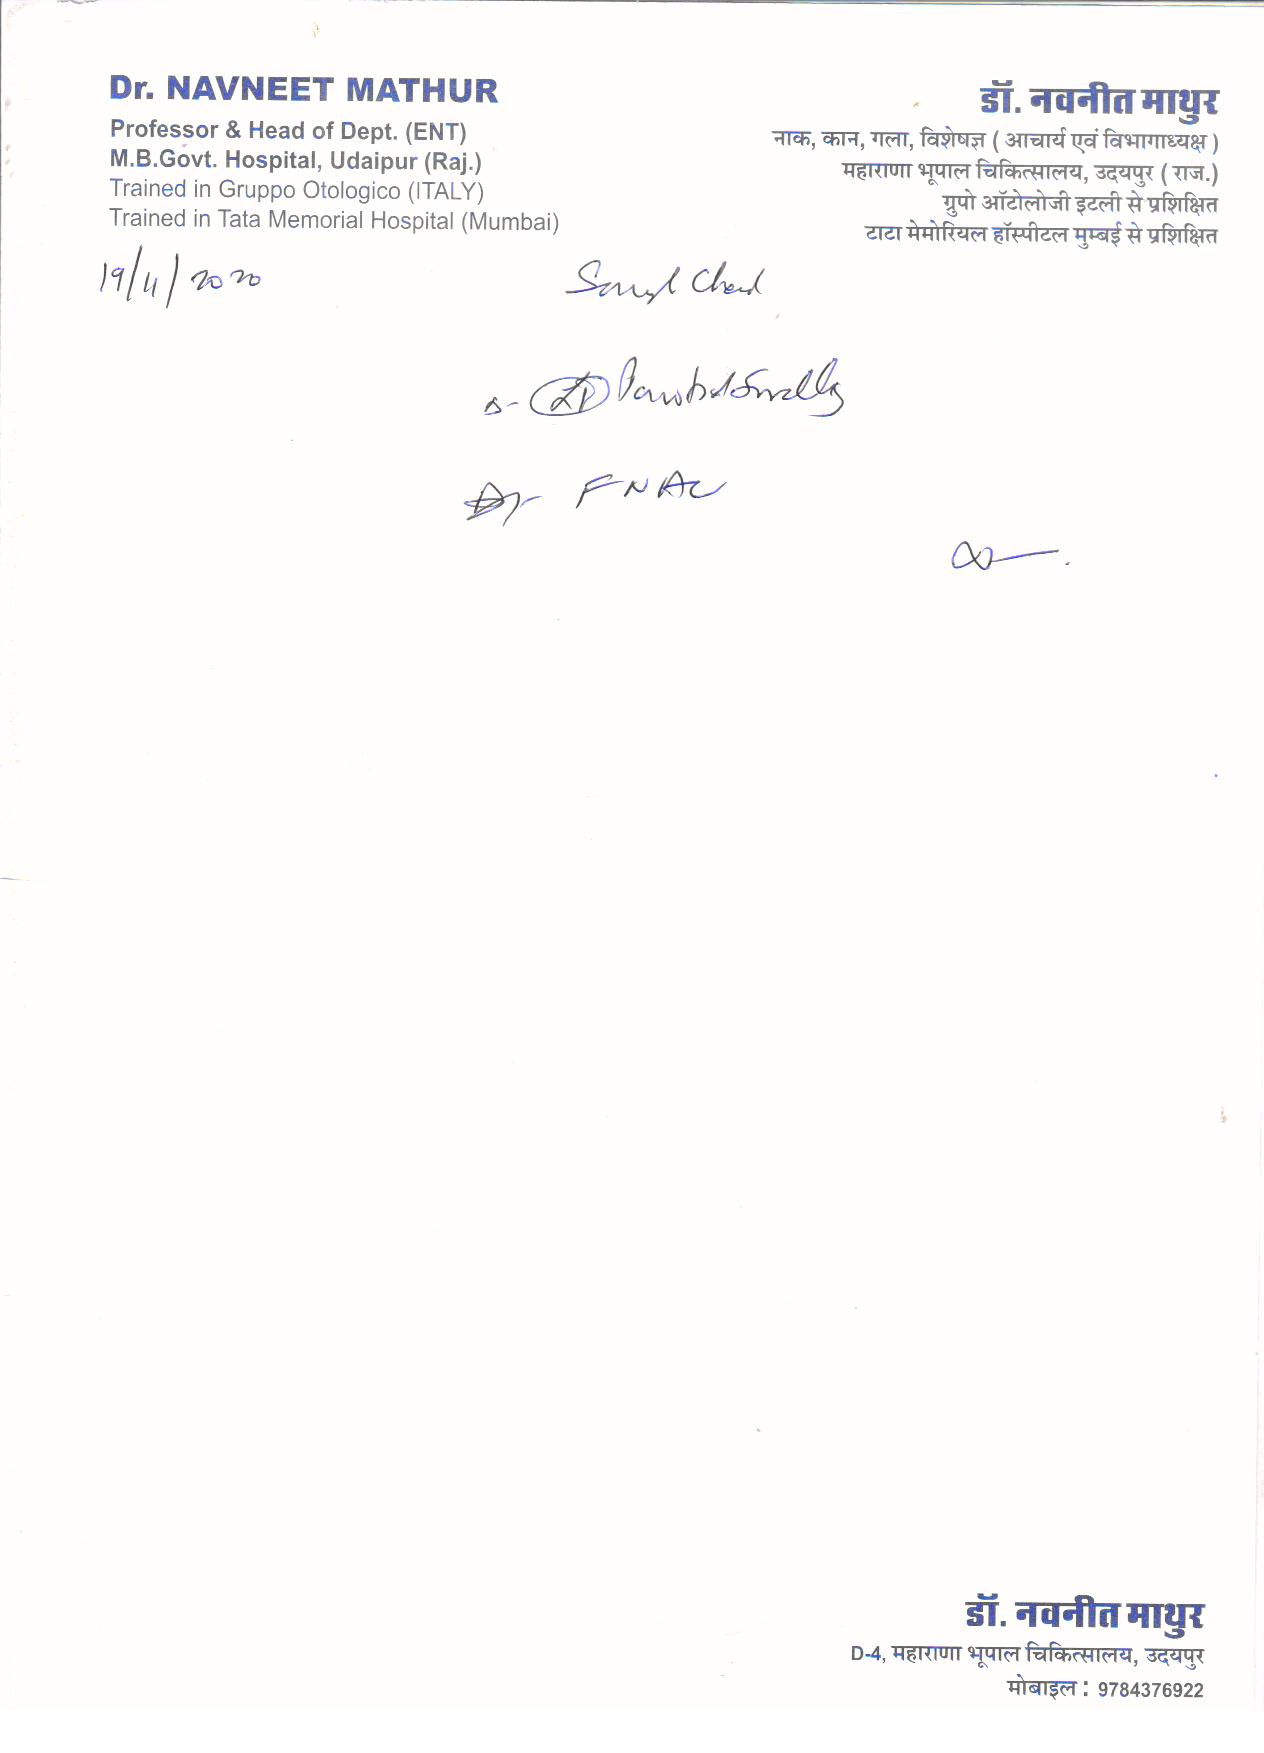 Dr. NAVNEET MATHUR
Professor & Head of Dept. (ENT)
M.B.Govt. Hospital, Udaipur (Raj.)
Trained in Gruppo Otologico (ITALY)
Trained in Tata Memorial Hospital (Mumbai)
डॉ. नवनीत माथुर
नाक, कान, गला, विशेषज्ञ ( आचार्य एवं विभागाध्यक्ष )
महाराणा भूपाल चिकित्सालय, उदयपुर ( राज.)
ग्रुपो ऑटोलोजी इटली से प्रशिक्षित
टाटा मेमोरियल हॉस्पीटल मुम्बई से प्रशिक्षित
19/4/2020
FNAC
डॉ. नवनीत माथुर
D-4, महाराणा भूपाल चिकित्सालय, उदयपुर
मोबाइल : 9784376922